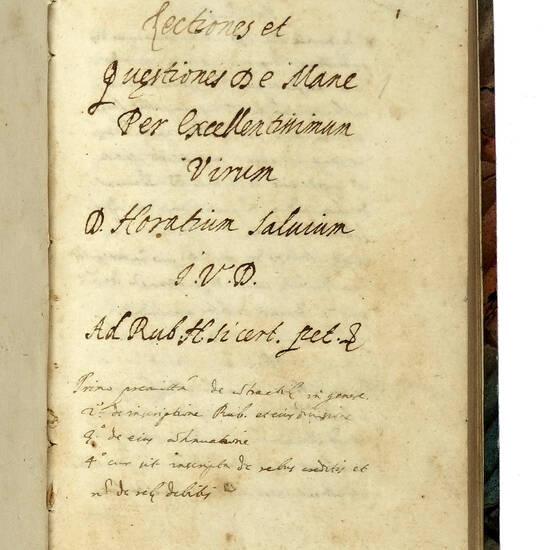 Lectiones et
Quęstiones De Mane
Per Excellentissimum
Virum
D. Horatium Saluium
I. V. D.
Ad Rub. ff. si cert. pet.
Primo de in genere.
2.º de inscriptione Rub. et eius divisione
3.º de eius
4.º cur sit inscripta de rebus creditis et
nō de debitis